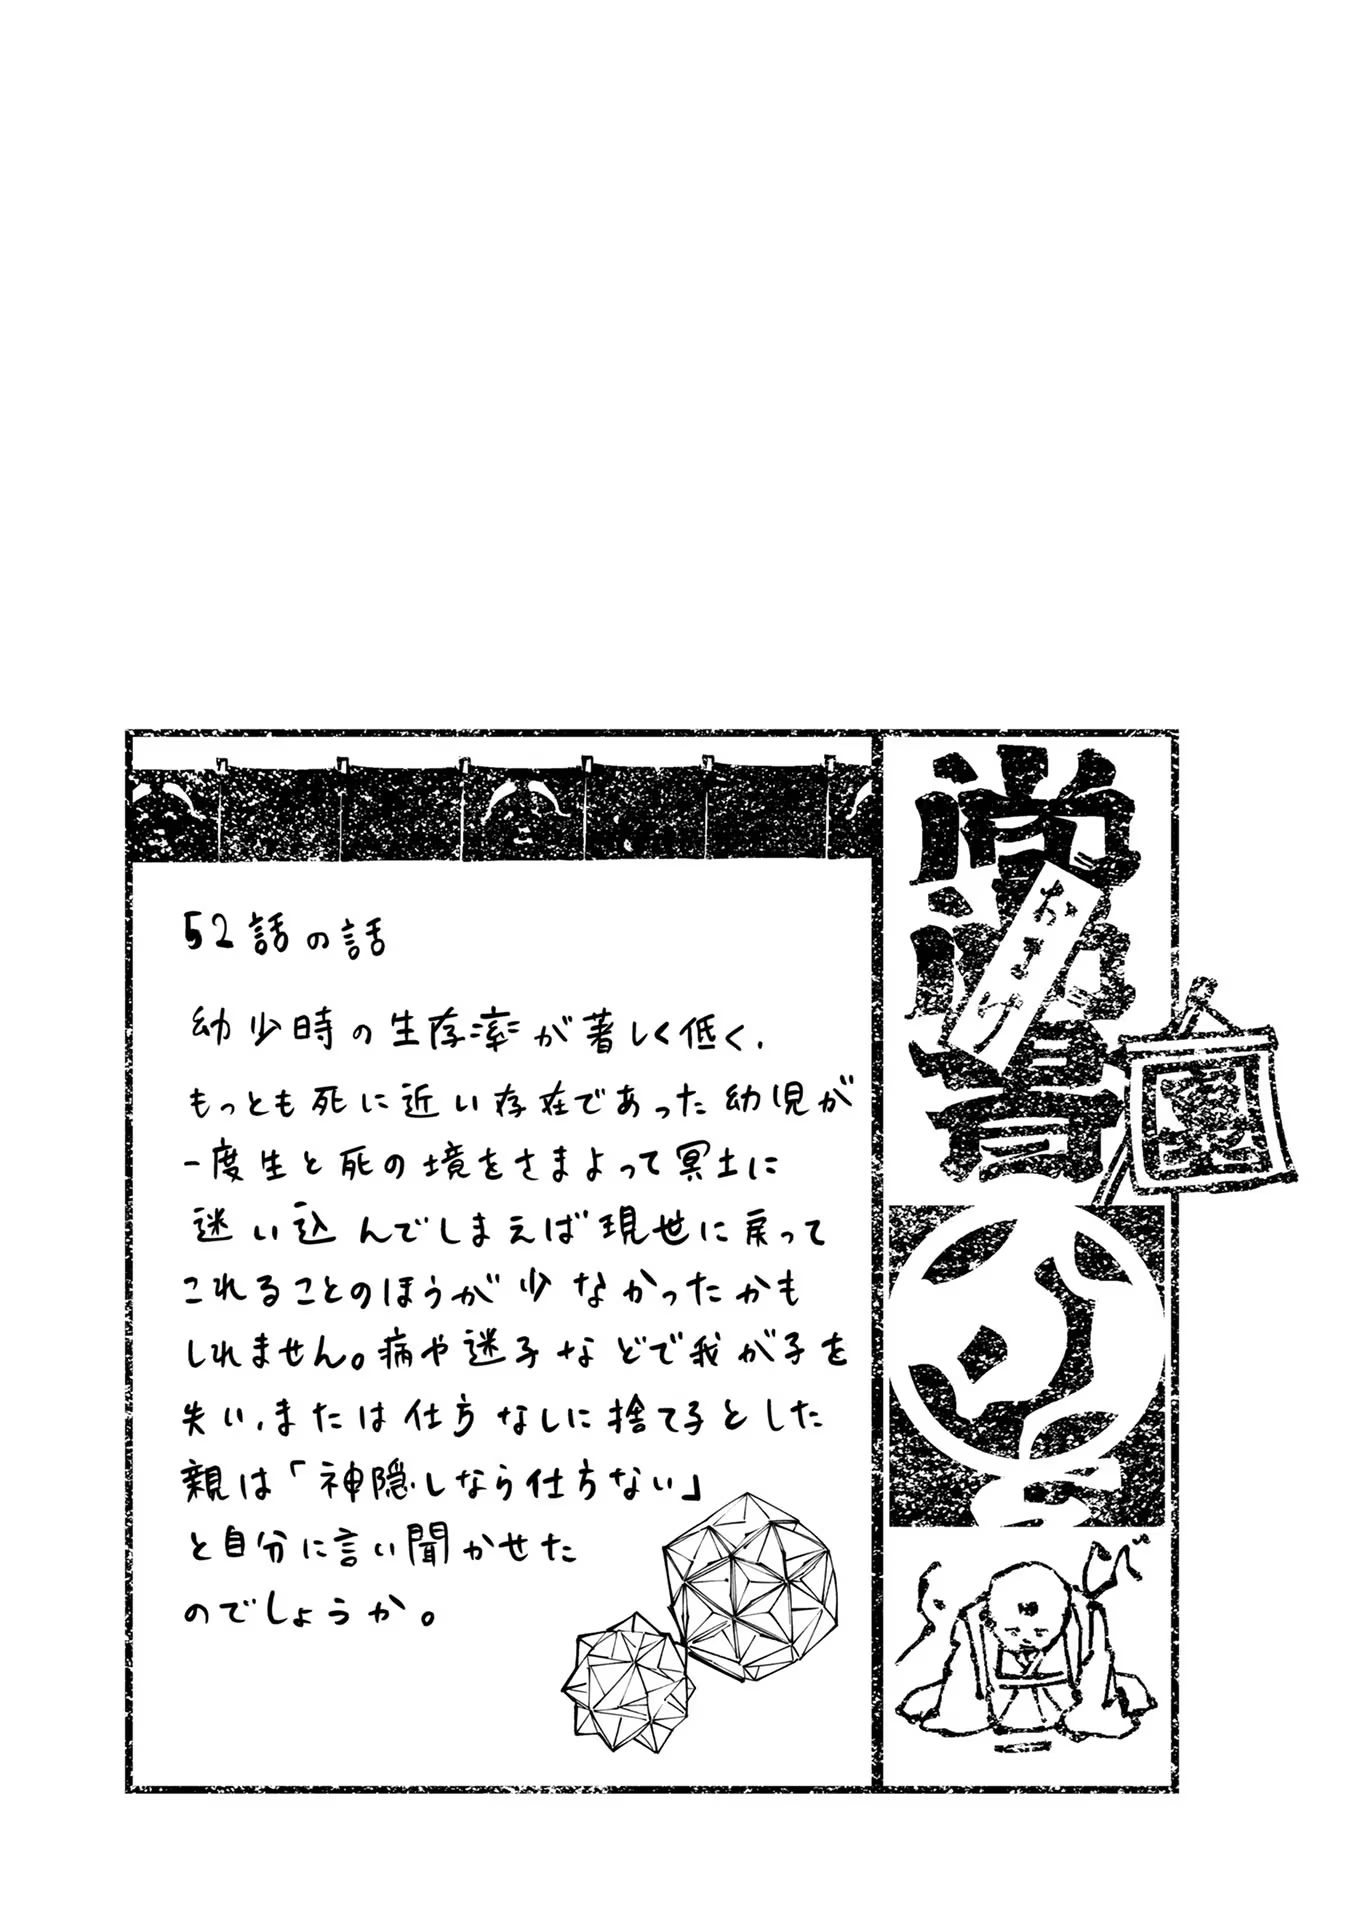 52話の話
幼少時の生存率が著しく低く、
もっとも死に近い存在であった幼児が
一度生と死の境をさまよって冥土に
迷い込んでしまえば現世に戻って
これることのほうが少なかったかも
しれません。病や迷子などで我が子を
失い、または仕方なしに捨て子とした
親は「神隠しなら仕方ない」
と自分に言い聞かせた
のでしょうか。
おまけ